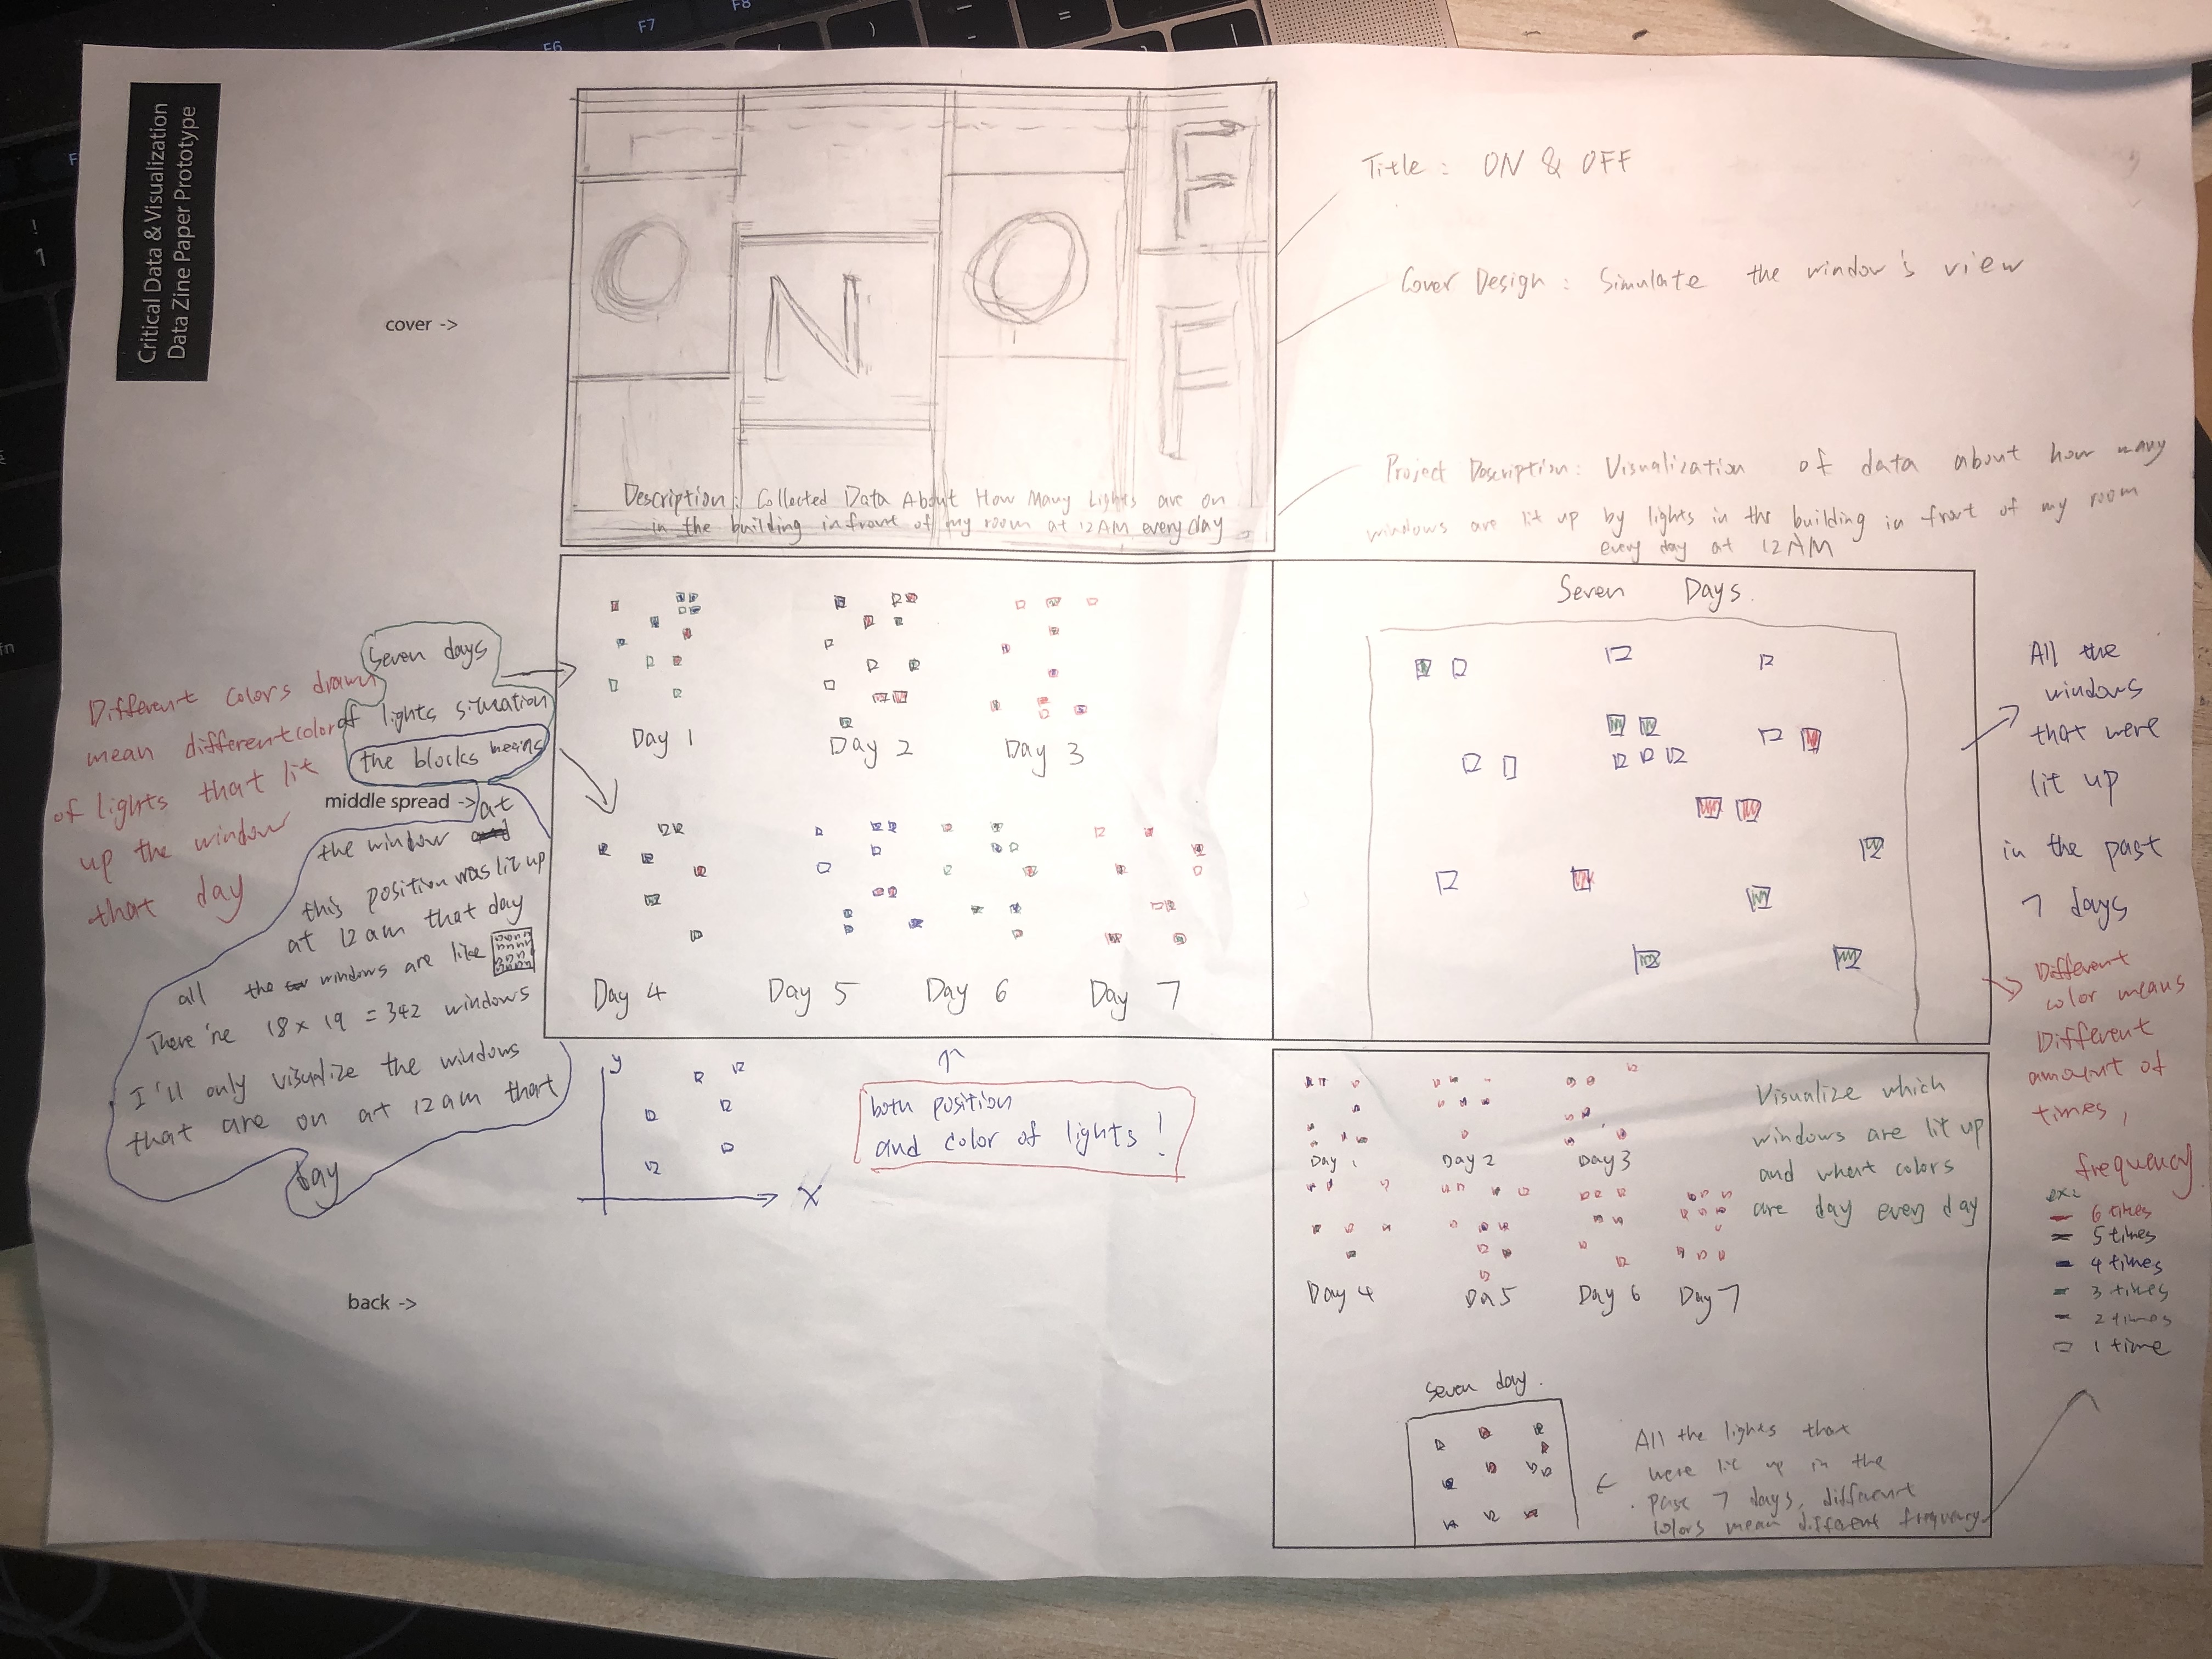 Critical Data & Visualization
Data Zine Paper Prototype
cover ->
O
N
O
F
F
Description: Collected Data About How Many Lights are on
in the building infront of my room at 12AM everyday
Title: ON & OFF
Cover Design: Simulate the window's view
Project Description: Visualization of data about how many
windows are lit up by lights in the building in front of my room
every day at 12AM
Different colors drawn
mean different colors
of lights that lit
up the window
that day
Seven days
of lights situation
the blocks means
middle spread ->
the window at
this position was lit up
at 12am that day
all the windows are like
There're 18 x 19 = 342 windows
I'll only visualize the windows
that are on at 12am that
day
Day 1
Day 2
Day 3
Day 4
Day 5
Day 6
Day 7
Seven Days.
All the
windows
that were
lit up
in the past
7 days
Different
color means
Different
amount of
times,
frequency
ex:
6 times
5 times
4 times
3 times
2 times
1 time
y
x
both position
and color of lights!
back ->
Day 1
Day 2
Day 3
Day 4
Da 5
Day 6
Day 7
Visualize which
windows are lit up
and what colors
are day every day
Seven day.
All the lights that
were lit up in the
past 7 days, different
colors mean different frequency